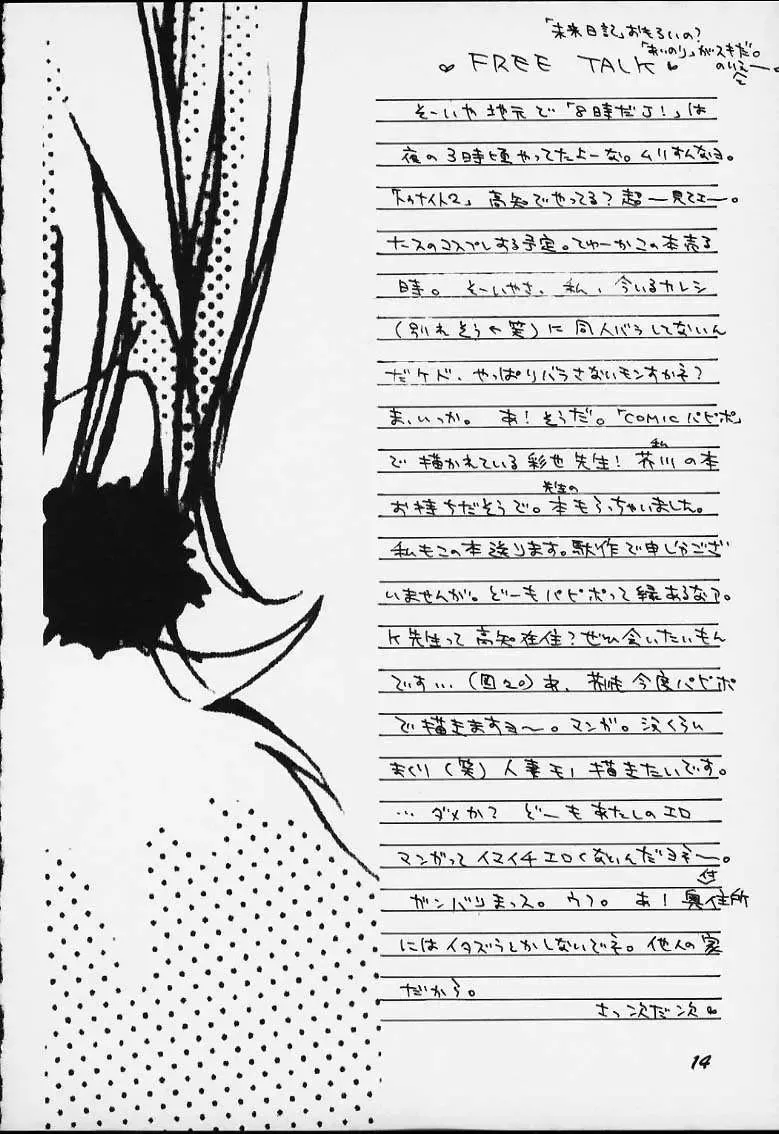 「未来日記」おもろいの?
「あいのり」がスキだ。
FREE TALK
そーいや地元で「8時だJ!」は
夜の3時頃やってたよーな。ムリすんなョ。
「トゥナイト2」高知でやってる?超ー見てェー。
ナースのコスプレする予定。てゆーかこの本売る
時。そーいやさ、私、今いるカレシ
(別れそう 笑)に同人バラしてないん
だケド、やっぱりバラさないモンすかネ?
ま、いっか。あ!そうだ。「COMICパピポ」
で描かれている彩也先生!芥川の本
私
お持ちだそうで。本もらっちゃいました。
先生の
私もこの本送ります。駄作で申しわけござ
いませんが。どーもパピポって縁あるなァ。
K先生って高知在住?ぜひ会いたいもん
です…(図々) あ、 今度パピポ
で描きますョ〜。マンガ。 くらい
まくり(笑)人妻モノ描きたいです。
…ダメか?どーもあたしのエロ
マンガってイマイチエロくないんだョネ〜。
ガンバリまっス。ウフ。あ!奥付住所
にはイタズラとかしないでネ。他人の家
だから。
さっ次だ次
14